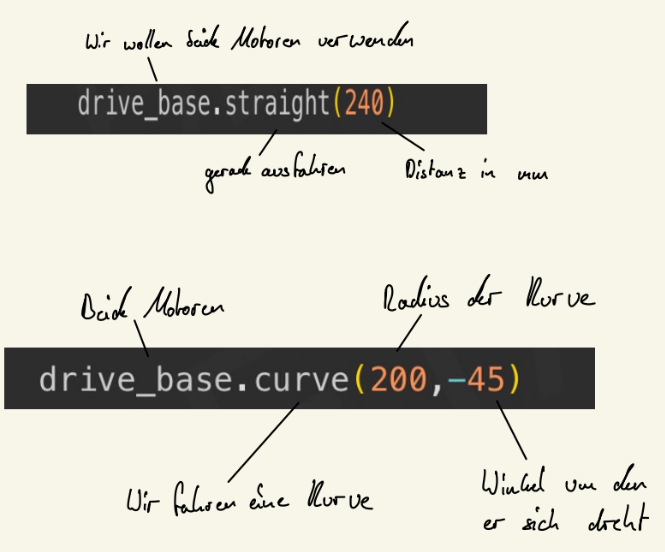 Wir wollen beide Motoren verwenden
drive_base.straight(240)
gerade ausfahren
Distanz in mm
Beide Motoren
Radius der Kurve
drive_base.curve(200,-45)
Wir fahren eine Kurve
Winkel um den
er sich dreht